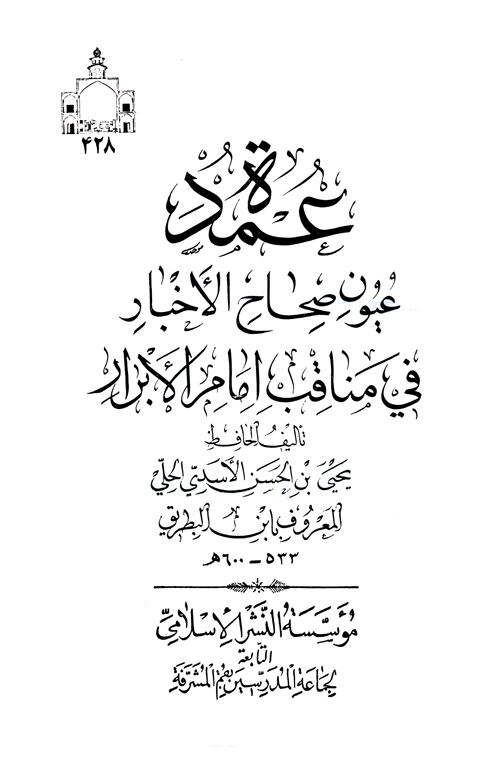 ۴۲۸
عُمدة
عُيُونِ صِحَاحِ الأَخْبَارِ
في مَنَاقِبِ إِمَامِ الأَبْرَارِ
تأليف الحافظ
يَحْيَى بْنِ الحَسَنِ الأَسَدِيِّ الحِلِّي
المَعْرُوفِ بِابْنِ البَطْرِيقِ
٥٣٣ - ٦٠٠هـ
مُؤَسَّسَةُ النَّشْرِ الإِسْلَامِيِّ
التَّابِعَة
لِجَمَاعَةِ المُدَرِّسِينَ بِقُمِ المُشَرَّفَةِ